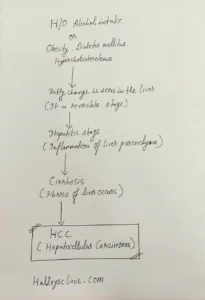 H/O Alcohol intake
or
Obesity, Diabetes mellitus,
Hypercholesterolemia
Fatty change is seen in the liver
(It is reversible stage)
Hepatitis stage
(Inflammation of Liver parenchyma)
Cirrhosis
(Fibrosis of liver occurs)
HCC
(Hepatocellular Carcinoma)